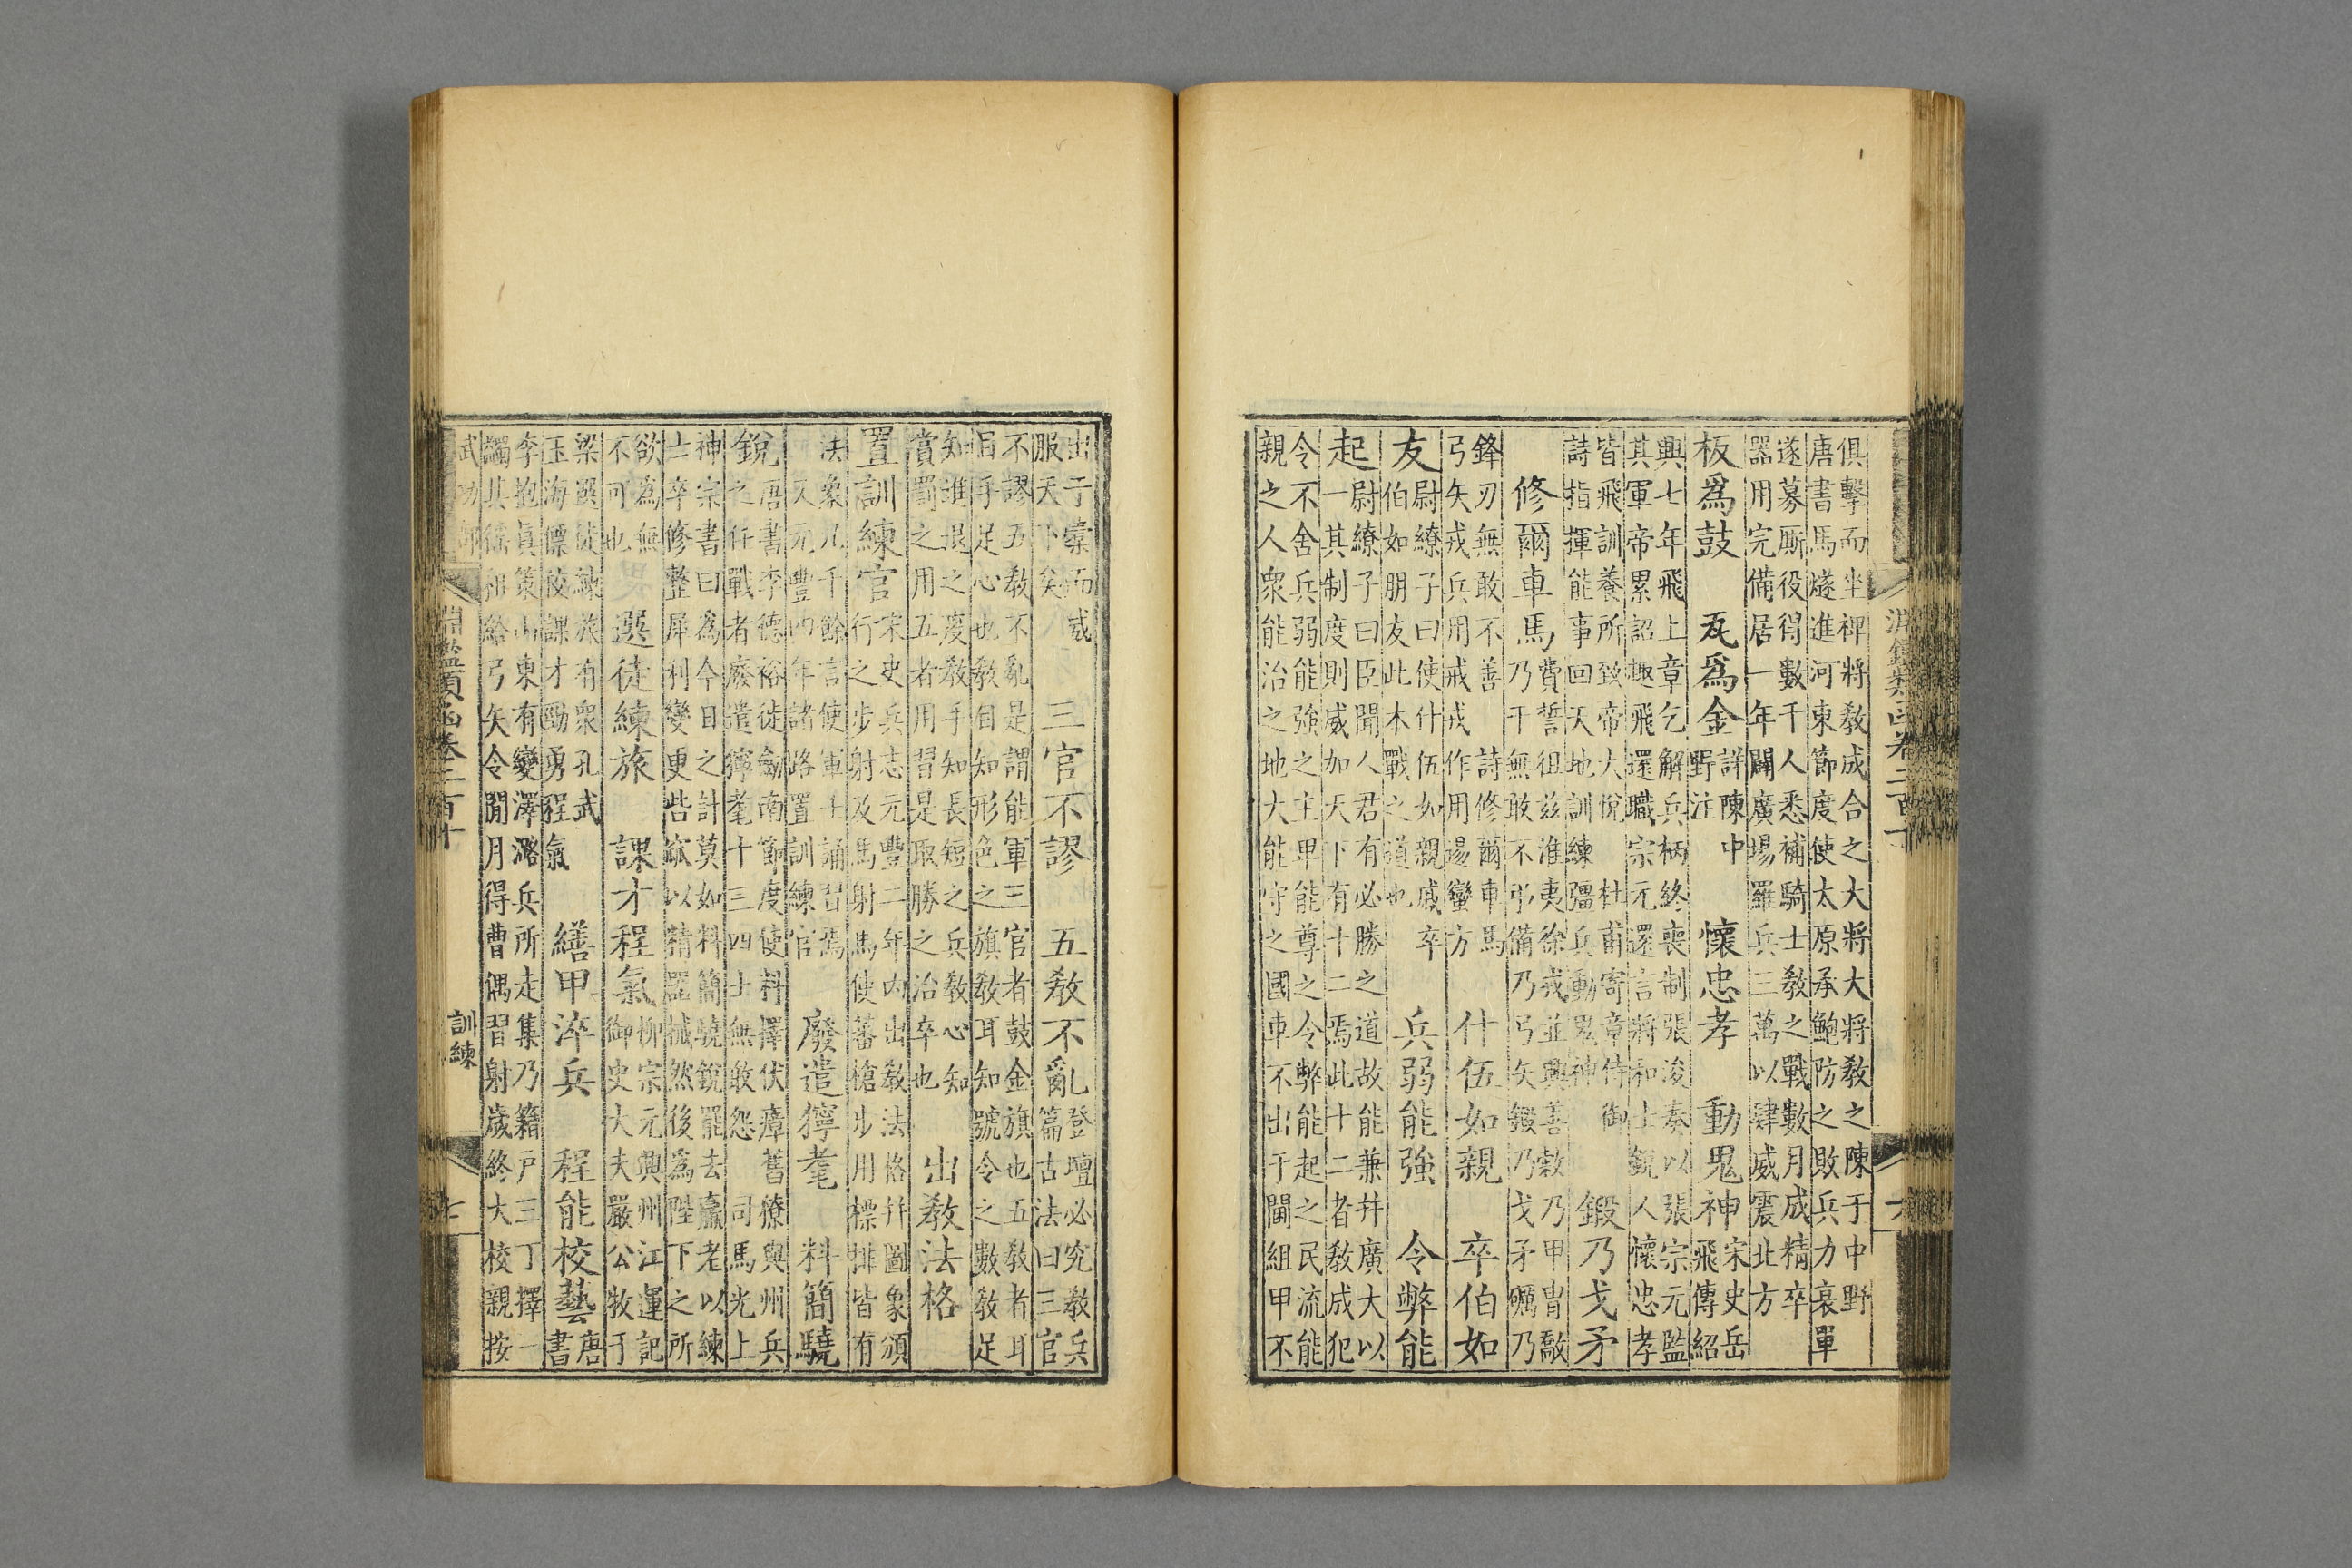 淵鑑類函卷二百十 六
俱擊而坐裨將教成合之大將大將教之陳于中野
唐書馬燧進河東節度使太原承鮑防之敗兵力衰單
遂募廝役得數千人悉補騎士教之戰數月成精卒
器用完備居一年闢廣場羅兵三萬以肆威震北方
板爲鼓 瓦爲金 詳陳中野注 懷忠孝 動鬼神 宋史岳飛傳紹
興七年飛上章乞解兵柄終喪制張浚奏以張宗元監
其軍帝累詔趣飛還職宗元還言將和士銳人懷忠孝
皆飛訓養所致帝大悅 杜甫寄章侍御
詩指揮能事回天地訓練彊兵動鬼神 鍛乃戈矛
修爾車馬 費誓徂茲淮夷徐戎並興善敹乃甲冑敽
乃干無敢不弔備乃弓矢鍛乃戈矛礪乃
鋒刃無敢不善 詩修爾車馬
弓矢戒兵用戒戎作用逷蠻方 什伍如親 卒伯如
友 尉繚子曰使什伍如親戚卒
伯如朋友此本戰之道也 兵弱能強 令弊能
起 尉繚子曰臣聞人君有必勝之道故能兼并廣大以
一其制度則威加天下有十二焉此十二者教成犯
令不舍兵弱能強之主卑能尊之令弊能起之民流能
親之人衆能治之地大能守之國車不出于閫組甲不
出于櫜而威
服天下矣 三官不謬 五教不亂 登壇必究教兵篇古法曰三官
不謬五教不亂是謂能軍三官者鼓金旗也五教者耳
目手足心也教目知形色之旗教耳知號令之數教足
知進退之度教手知長短之兵教心知
賞罰之用五者用習是取勝之治卒也 出教法格
置訓練官 宋史兵志元豐二年内出教法格幷圖象頒
行之步射及馬射馬使蕃槍步用標排皆有
法象凡千餘言使軍士誦習焉
又元豐四年諸路置訓練官 廢遣獰耄 料簡驍
銳 唐書李德裕徙劍南節度使料擇伏瘴舊獠與州兵
之任戰者廢遣獰耄十三四士無敢怨 司馬光上
神宗書曰爲今日之計莫如料簡驍銳罷去羸老以練
士卒修整犀利變更呰窳以精器械然後爲陛下之所
欲爲無
不可也 選徒練旅 課才程氣 柳宗元興州江運記御史大夫嚴公牧于
梁選徒練旅有衆孔武
玉海僄狡課才勁勇程氣 繕甲淬兵 程能校藝 唐書
李抱真策山東有變澤潞兵所走集乃籍戶三丁擇一
蠲其徭租給弓矢令閒月得曹偶習射歲終大校親按
武功部 淵鑑類函卷二百十 訓練 七